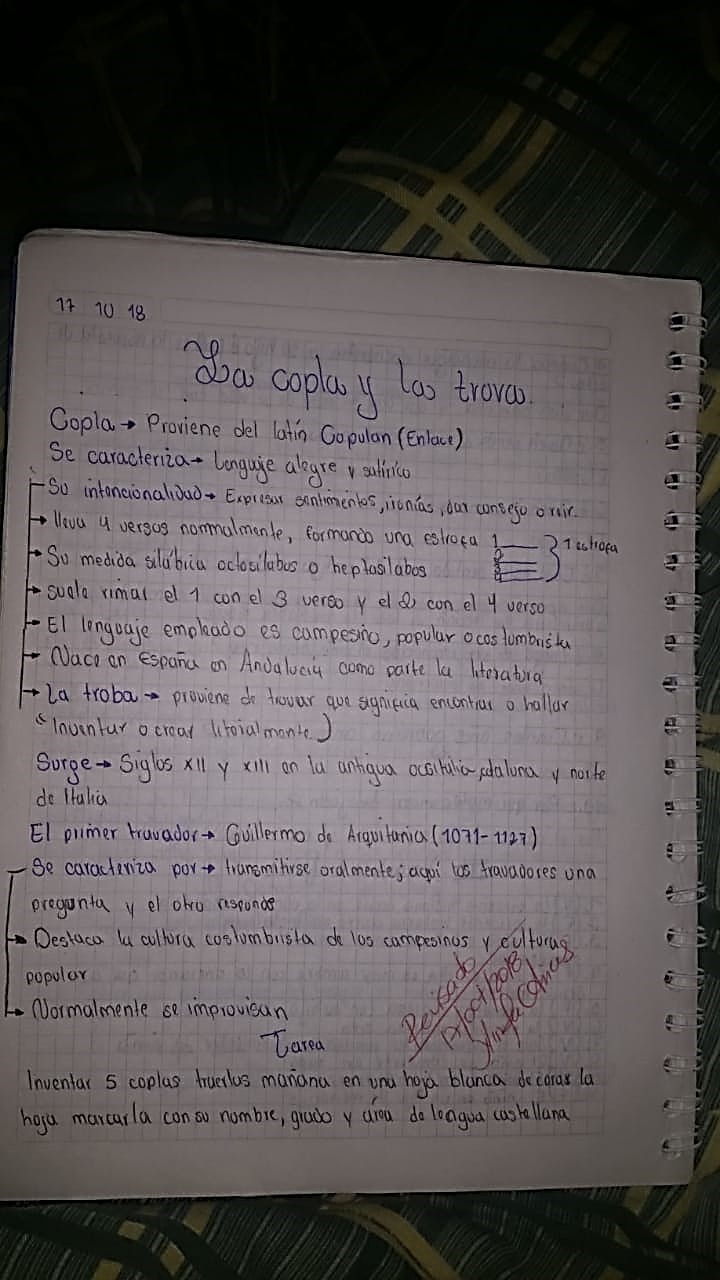 17 10 18
La copla y las trovas.
Copla → Proviene del latín Copulan (Enlace)
Se caracteriza → Lenguje alegre y satírico
Su intencionalidad → Expresar sentimientos, ironías, dar consejo o reir.
→ lleva 4 versos normalmente, formando una estrofa 1 1 estrofa
→ Su medida silábica octosílabos o heptasílabos
→ suele rimar el 1 con el 3 verso y el 2 con el 4 verso
→ El lenguaje empleado es campesino, popular o costumbrista
→ Nace en España en Andalucía como parte la literatura
→ La troba → proviene de trovar que significa encontrar o hallar
(Inventar o crear literialmente)
Surge → Siglos XII y XIII en la antigua occitalia, y norte
de Italia
El primer travador → Guillermo de Arquitania (1071-1127)
Se caracteriza por → transmitirse oralmente; aquí los travadores una
pregunta y el otro responde
→ Destaca la cultura costumbrista de los campesinos y culturas
popular
→ Normalmente se improvisan
Revisado
Tarea
Inventar 5 coplas traerlas mañana en una hoja blanca de caras la
hoja marcarla con su nombre, grado y área de lengua castellana